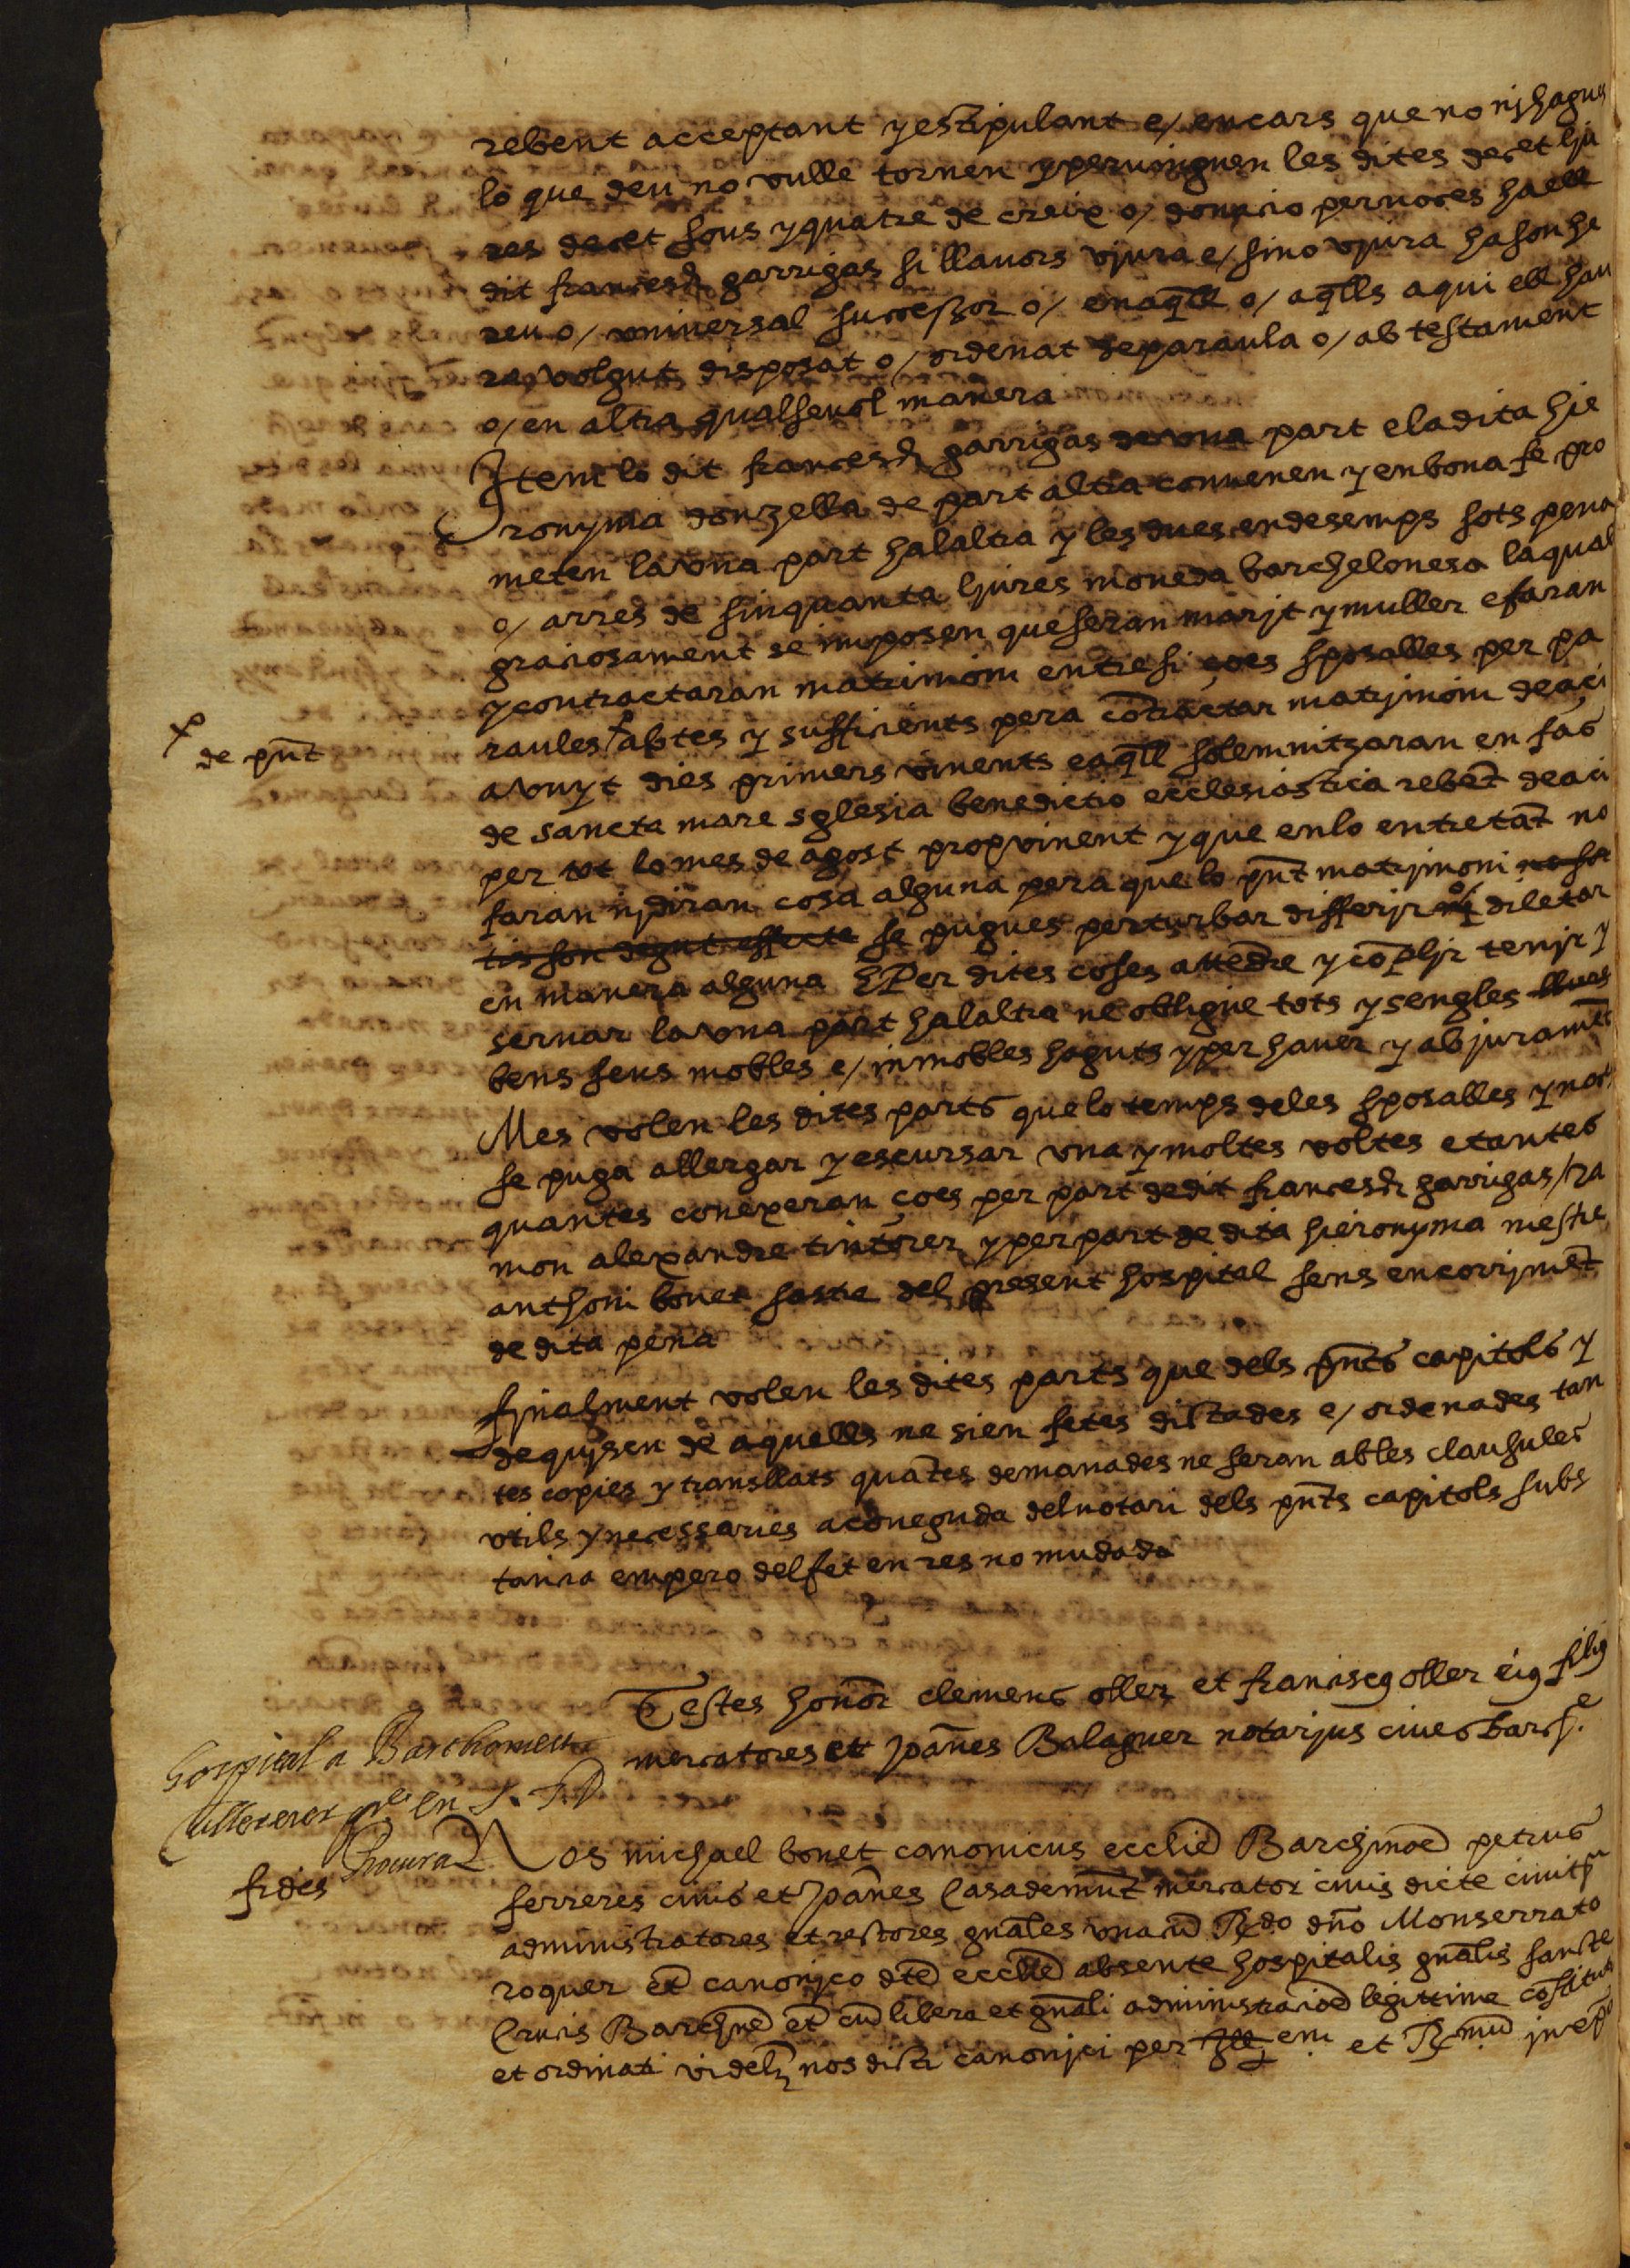 rebent acceptant y estipulant e/ encars que no nj hagues
lo que deu no vulle tornen y peruinguen les dites deset lju
res deset sous y quatre de creix o/ donacio pernoces ha ell
dit francesch garrigas si llauors viura e/ sino viura ha son he
reu o/ vniuersal successor o/ en aq̄ll o/ aq̄lls aqui ell hau
ra volgut disposat o/ ordenat de paraula o/ ab testament
o/ en altra qualseuol manera
Item lo dit francesch garrigas de vna part e la dita hie
ronyma donzella de part altra conuenen y en bona fe pro
meten la vna part ha laltra y les dues endesemps sots pena
o/ arres de sinquanta ljures moneda barchelonesa la qual
graciosament se imposen que seran marjt y muller e faran
y contractaran matrimoni entre si ços es sposalles per pa
raules abtes y sufficients pera cōtractar matrjmoni de açi
a vuyt dies primers vinents e aq̄ll solemnitzaran en fas
de sancta mare sglesia benedictio ecclesiastica rebēt de aci
per tot lo mes de agost prop vinent y que en lo entretāt no
faran nj diran cosa alguna pera que lo pn̄t matrjmoni no sor
tis son degut effecte se pugues perturbar differjr o/ diletar
en manera alguna E Per dites coses attēdre y cōpljr tenjr y
seruar la vna part ha laltra ne obligue tots y sengles llurs
bens seus mobles e/ inmobles haguts y per hauer y ab juramēt
Mes volen les dites parts que lo temps de les sposalles y noces
se puga allergar y escursar vna y moltes voltes e tantes
quantes conexeran ço es per part de dit francesch garrigas / ra
mon alexandre tintorer y per part de dita hieronyma mestre
anthoni bonet sastre del present hospital sens encorrjmēt
de dita pena
Finalment volen les dites parts que dels pn̄ts capitols y
de quiscu de aquells ne sien fetes dictades e/ ordenades tan
tes copies y transllats quātes demanades ne seran ab les clausules
vtils y necessaries a coneguda del notari dels pn̄ts capitols subs
tancia empero del fet en res no mudada
x
de pn̄t
Testes honor clemens oller et franciscꝰ oller eiꝰ filiꝰ
mercatores et Joānes Balaguer notarjus ciues barcħ.
hospital a Barthomeu
en S. F. D
Procura
fides
Nos michael bonet canonicus ecclie Barchinoē petrus
ferreres ciuis et Joānes Casademūt mercator ciuis dicte ciuitꝭ
administratores et rectores gnāles vnacū Rdo dño Monserrato
roquer et canonjco dte ecclie absente hospitalis gnālis sancte
Crucis Barchne et cū libera et gnāli administracioē legittime cōstitui
et ordinati videlꝫ nos dicti canonjci per Ill em et R mū